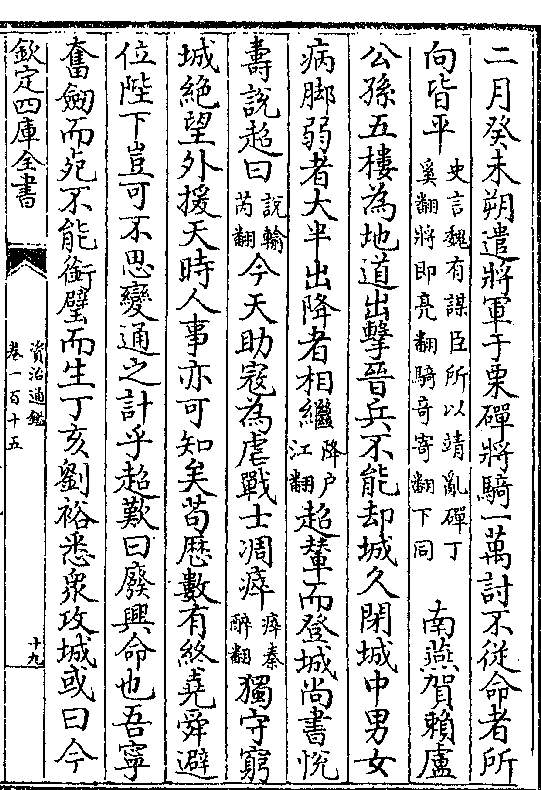 二月癸未朔遣將軍于栗磾將騎一萬討不從命者所
向皆平史言魏有謀臣所以靖亂磾丁
奚翻將即亮翻騎奇寄翻下同南燕賀賴盧
公孫五樓為地道出擊晉兵不能却城久閉城中男女
病脚弱者大半出降者相繼降户
江翻超輦而登城尚書悅
壽說超曰說輸
芮翻今天助寇為虐戰士凋瘁瘁秦
醉翻獨守窮
城絶望外援天時人事亦可知矣苟歴數有終堯舜避
位陛下豈可不思變通之計乎超歎曰廢興命也吾寧
奮劒而死不能銜璧而生丁亥劉裕悉衆攻城或曰今
欽定四庫全書
資治通鑑
卷一百十五
十九